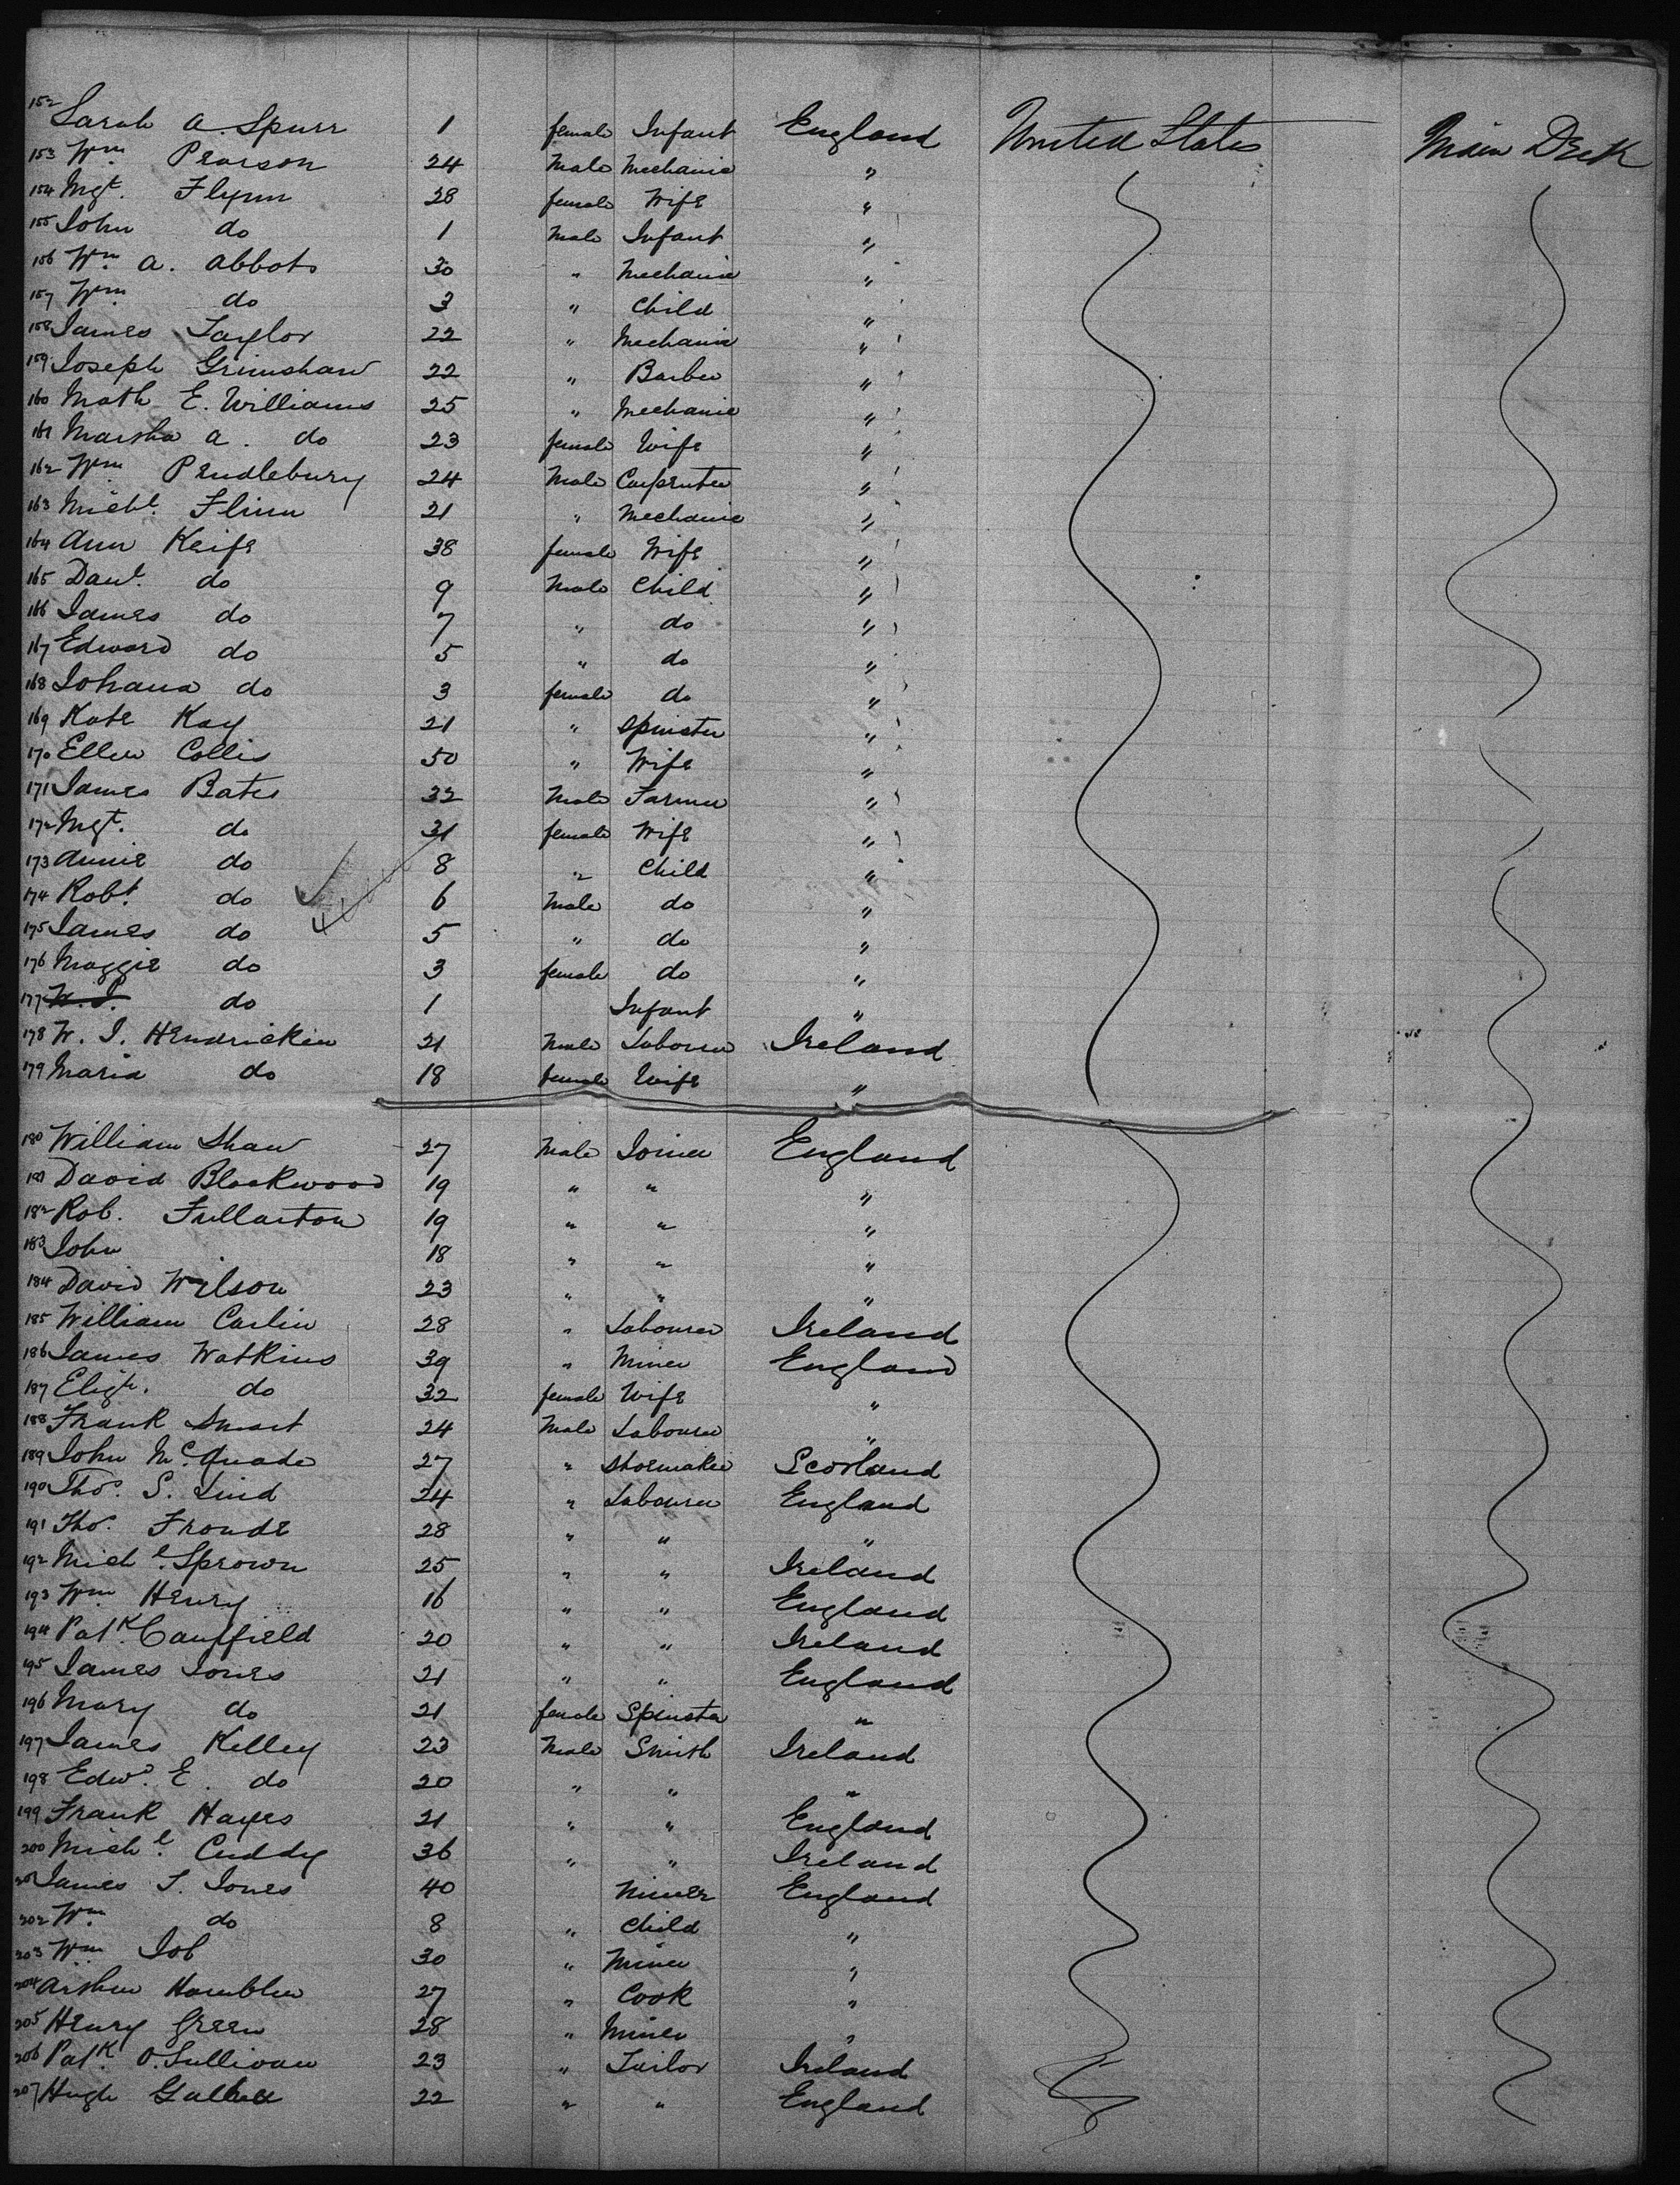 152 Sarah A. Spurr 1 female Infant England United States Main Deck
153 Wm Pearson 24 Male Mechanic "
154 Mgt. Flynn 28 female Wife "
155 John do 1 Male Infant "
156 Wm A. Abbots 30 " Mechanic "
157 Wm do 3 " Child "
158 James Taylor 22 " Mechanic "
159 Joseph Grimshaw 22 " Barber "
160 Math E. Williams 25 " Mechanic "
161 Marsha A. do 23 female Wife "
162 Wm Pendlebury 24 Male Carpenter "
163 Michl. Flinn 21 " Mechanic "
164 Ann Keife 38 female Wife "
165 Danl. do 9 Male Child "
166 James do 7 " do "
167 Edward do 5 " do "
168 Johana do 3 female do "
169 Kate Kay 21 " Spinster "
170 Ellen Collis 50 " Wife "
171 James Bates 32 Male Farmer "
172 Mgt. do 31 female Wife "
173 Annie do 8 " Child "
174 Robt. do 6 Male do "
175 James do 5 " do "
176 Maggie do 3 female do "
177 do 1 Infant "
178 W. J. Hendricken 21 Male Labourer Ireland
179 Maria do 18 female Wife "
180 William Shaw 27 Male Joiner England
181 David Blackwood 19 " " "
182 Rob. Fullarton 19 " " "
183 John 18 " " "
184 David Wilson 23 " " "
185 William Carlin 28 " Labourer Ireland
186 James Watkins 39 " Miner England
187 Eligh. do 32 female Wife "
188 Frank Smart 24 Male Labourer "
189 John McQuade 27 " Shoemaker Scotland
190 Thos. S. Lind 24 " Labourer England
191 Thos. Froude 28 " " "
192 Michl. Sprown 25 " " Ireland
193 Wm Henry 16 " " England
194 Patk. Caulfield 20 " " Ireland
195 James Jones 21 " " England
196 Mary do 21 female Spinster "
197 James Kelley 23 Male Smith Ireland
198 Edwd. E. do 20 " " "
199 Frank Hayes 21 " " England
200 Michl. Cuddy 36 " " Ireland
201 James T. Jones 40 Miner England
202 Wm. do 8 " Child "
203 Wm Job 30 " Miner "
204 Arthur Hamblen 27 " Cook "
205 Henry Green 28 " Miner "
206 Patk. O.Sullivan 23 " Tailor Ireland
207 Hugh 22 " " England